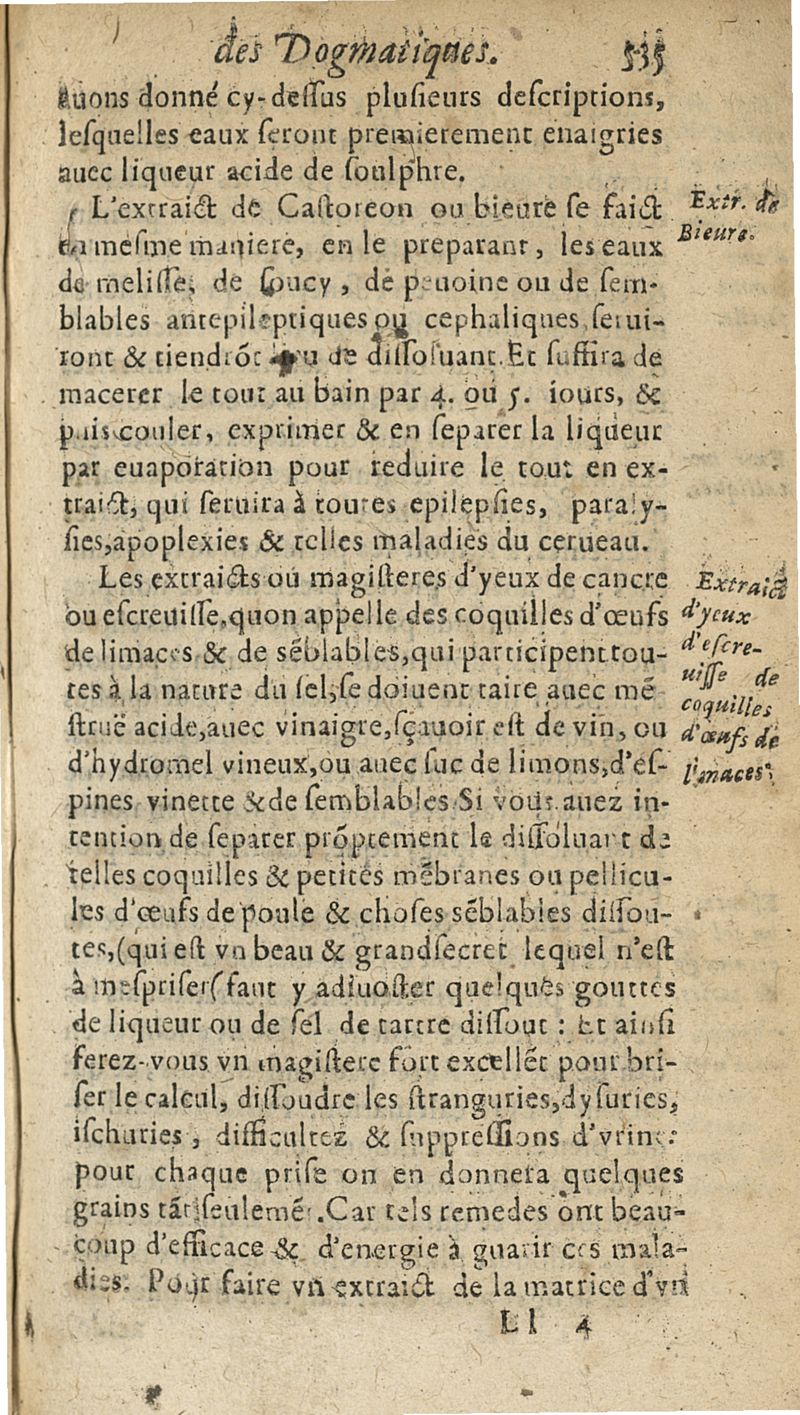 des Dogmatiques. 535
auons donné cy-dessus plusieurs descriptions,
lesquelles eaux seront premierement enaigries
auec liqueur acide de soulphre.
L'extraict de Castoreon ou bieure se faict
en mesme maniere, en le preparant, les eaux
de melisse, de soucy, de peuoine ou de sem-
blables antepileptiques ou cephaliques, serui-
ront & tiendrõt lieu de dissoluant. Et suffira de
macerer le tout au bain par 4. ou 5. iours, &
puis couler, exprimer & en separer la liqueur
par euaporation pour reduire le tout en ex-
traict, qui seruira à toutes epilepsies, paraly-
sies, apoplexies & telles maladies du cerueau.
Extr. de
Bieure.
Les extraicts ou magisteres d'yeux de cancre
ou escreuisse, quon appelle des coquilles d'œufs
de limaces & de sẽblables, qui participent tou-
tes à la nature du sel, se doiuent faire auec mẽ
struë acide, auec vinaigre, sçauoir est de vin, ou
d'hydromel vineux, ou auec suc de limons, d'es-
pines vinette & de semblables. Si vous auez in-
tention de separer prõptement le dissoluant de
telles coquilles & petites mẽbranes ou pellicu-
les d'œufs de poule & choses sẽblables dissou-
tes, (qui est vn beau & grand secret lequel n'est
à mespriser( faut y adiuoster quelques gouttes
de liqueur ou de sel de tartre dissout : Et ainsi
ferez-vous vn magistere fort excellẽt pour bri-
ser le calcul, dissoudre les stranguries, dysuries,
ischuries, difficultez & suppressions d'vrine:
pour chaque prise on en donnera quelques
grains tãt seulemẽt. Car tels remedes ont beau-
coup d'efficace & d'energie à guarir ces mala-
dies. Pour faire vn extraict de la matrice d'vn
Extraict
d'yeux
d'escre-
uisse de
coquilles
d'œufs de
limaces.
Ll 4